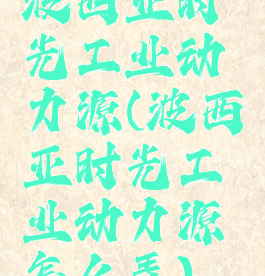 波西亚时
光工业动
力源(波西
亚时光工
业动力源
怎么弄)